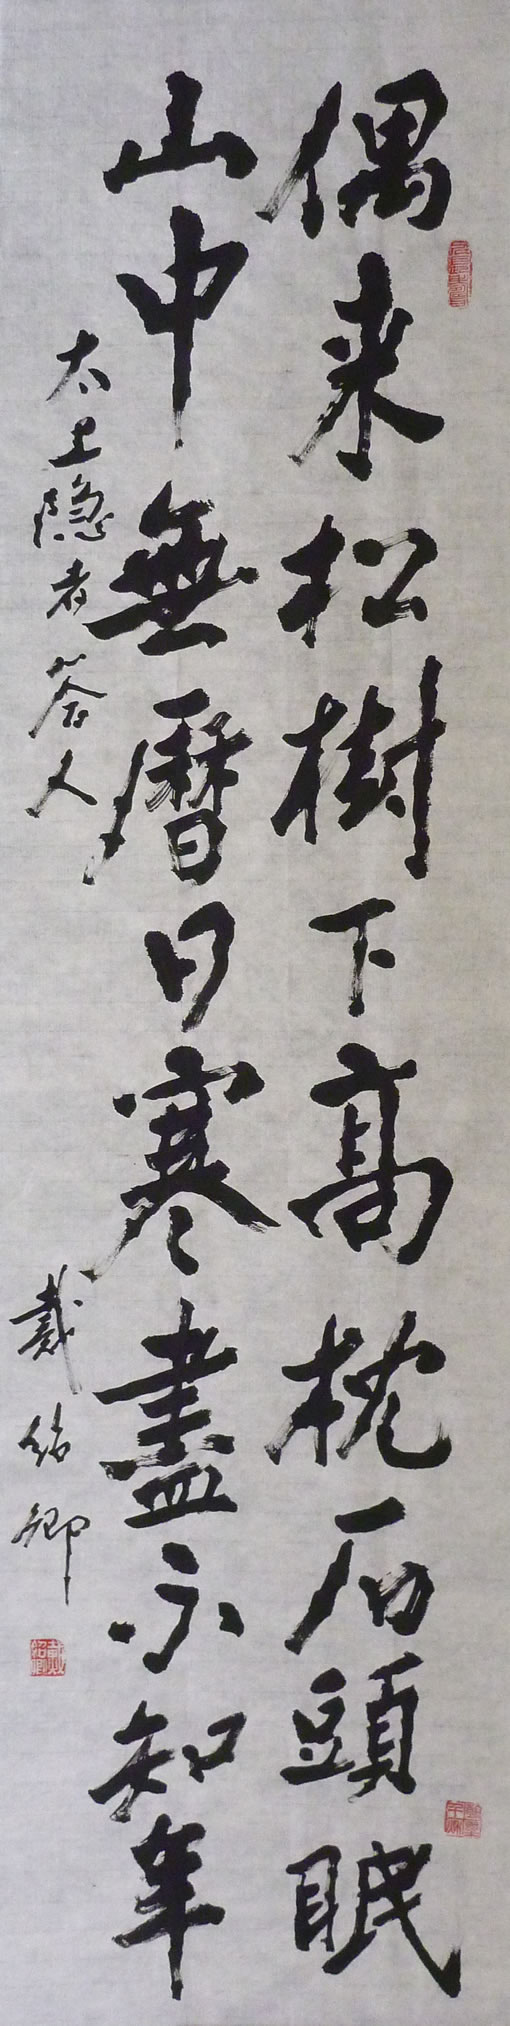 偶来松樹下高枕石頭眠
山中無曆日寒盡不知年
太上隐者答人
戴绍卿